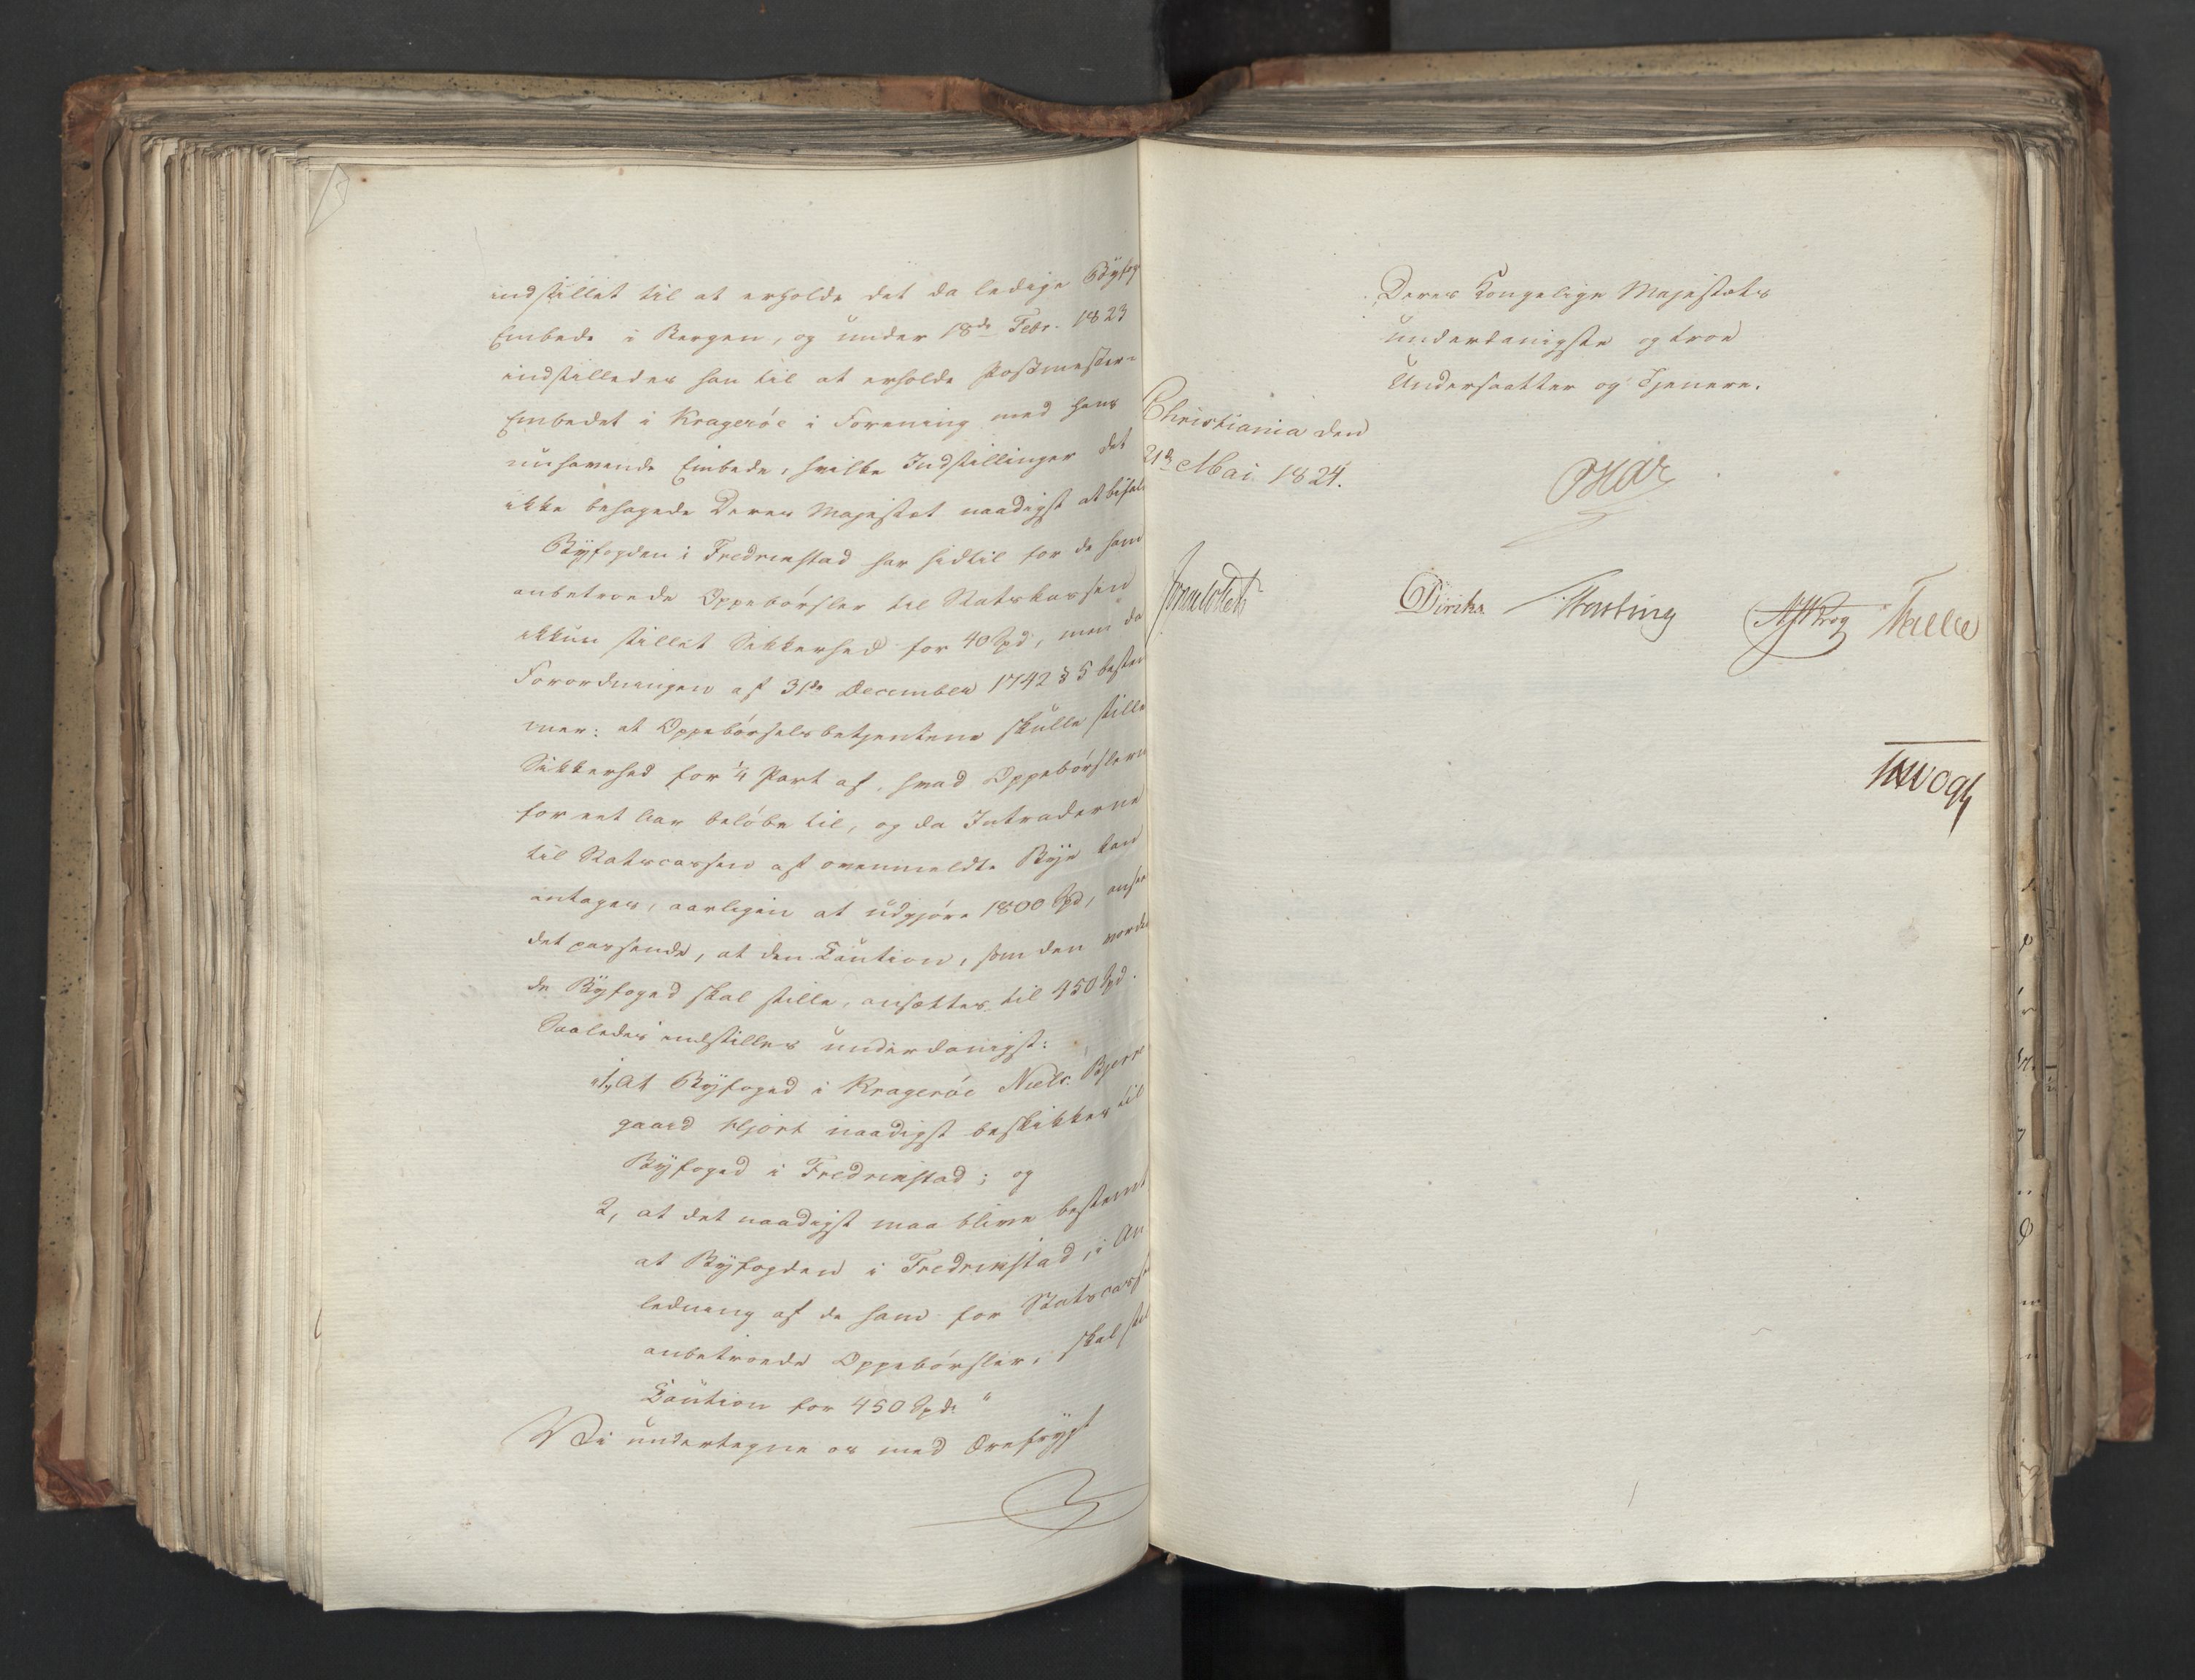 indstillet til at erholde det da ledige Byfog
Embede i Bergen, og under 18de Febr. 1823
indstilledes han til at erholde Postmester-
Embedet i Kragerøe i Forening med hans
nuhavende Embede, hvilke Indstillinger det
ikke behagede Deres Majestæt naadigst at bifal
Byfogden i Fredrikstad har hidtil for de ham
anbetroede Oppebørsler til Statskassen
ikkun stillet Sikkerhed for 40 Spd, men da
Forordningen af 31te December 1742 § 5 bestem
mer: at Oppebørselsbetjentene skulle stille
Sikkerhed for ¼ Part af, hvad Oppebørslerne
for eet Aar beløbe til, og da Intraderne
til Statscassen af ovenmeldte Bye kan
antages, aarligen at udgjøre 1800 Spd, ansee
det passende, at den Caution, som den vorden
de Byfoged skal stille, ansættes til 450 Spd.
Saaledes indstilles underdanigst:
"1, At Byfoged i Kragerøe Niels Bjerre
gaard Hjort naadigst beskikkes til
Byfoged i Fredrikstad; og
2, at det naadigst maa blive bestemt
at Byfogden i Fredrikstad, i An
ledning af de ham for Statscassen
anbetroede Oppebørsler, skal stil
Caution for 450 Spd. "
Vi undertegne os med Ærefrygt
Deres Kongelige Majestæts
underdanigste og troe
Undersaatter og Tjenere.
Christiania den
21de Mai 1824.
Oscar
Diriks Fasting Krog
JHVogt